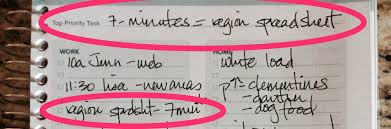 Top Priority Task 7-minutes = region spreadsheet
WORK
10a Jenn - web
11:30 lisa - new areas
region sprdsht - 7 min
HOME
white load
p↑ - clementines
- dog food